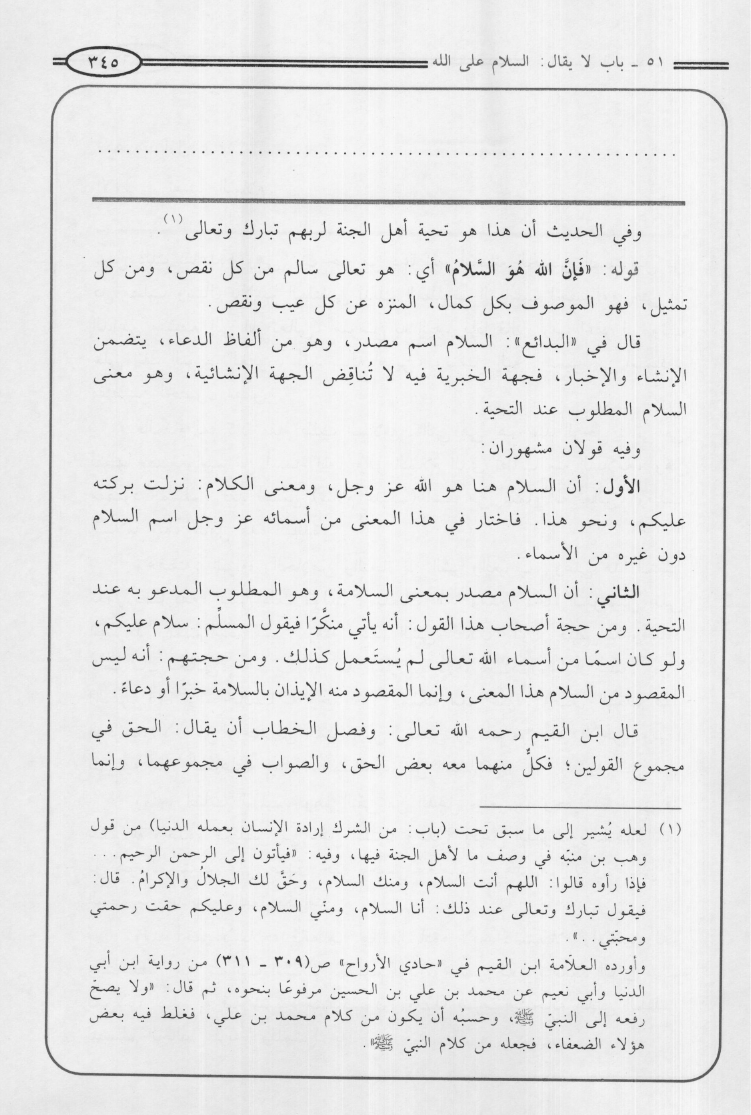 ٥١ ـ باب لا يقال: السلام على الله
٣٤٥
................................................................
وفي الحديث أن هذا هو تحية أهل الجنة لربهم تبارك وتعالى(١).
قوله: «فَإنَّ الله هُوَ السَّلامُ» أي: هو تعالى سالم من كل نقص، ومن كل
تمثيل، فهو الموصوف بكل كمال، المنزه عن كل عيب ونقص.
قال في «البدائع»: السلام اسم مصدر، وهو من ألفاظ الدعاء، يتضمن
الإنشاء والإخبار، فجهة الخبرية فيه لا تُناقِض الجهة الإنشائية، وهو معنى
السلام المطلوب عند التحية.
وفيه قولان مشهوران:
الأول: أن السلام هنا هو الله عز وجل، ومعنى الكلام: نزلت بركته
عليكم، ونحو هذا. فاختار في هذا المعنى من أسمائه عز وجل اسم السلام
دون غيره من الأسماء.
الثاني: أن السلام مصدر بمعنى السلامة، وهو المطلوب المدعو به عند
التحية. ومن حجة أصحاب هذا القول: أنه يأتي منكَّرًا فيقول المسلِّم: سلام عليكم،
ولو كان اسمًا من أسماء الله تعالى لم يُستَعمل كذلك. ومن حجتهم: أنه ليس
المقصود من السلام هذا المعنى، وإنما المقصود منه الإيذان بالسلامة خبرًا أو دعاءً.
قال ابن القيم رحمه الله تعالى: وفصل الخطاب أن يقال: الحق في
مجموع القولين؛ فكلٌّ منهما معه بعض الحق، والصواب في مجموعهما، وإنما
(١) لعله يُشير إلى ما سبق تحت (باب: من الشرك إرادة الإنسان بعمله الدنيا) من قول
وهب بن منبّه في وصف ما لأهل الجنة فيها، وفيه: «فيأتون إلى الرحمن الرحيم...
فإذا رأوه قالوا: اللهم أنت السلام، ومنك السلام، وحَقَّ لك الجلالُ والإكرامُ. قال:
فيقول تبارك وتعالى عند ذلك: أنا السلام، ومنّي السلام، وعليكم حقت رحمتي
ومحبّتي..».
وأورده العلّامة ابن القيم في «حادي الأرواح» ص(٣٠٩ ـ ٣١١) من رواية ابن أبي
الدنيا وأبي نعيم عن محمد بن علي بن الحسين مرفوعًا بنحوه، ثم قال: «ولا يصحّ
رفعه إلى النبيّ ﷺ، وحسبُه أن يكون من كلام محمد بن علي، فغلط فيه بعض
هؤلاء الضعفاء، فجعله من كلام النبيّ ﷺ».